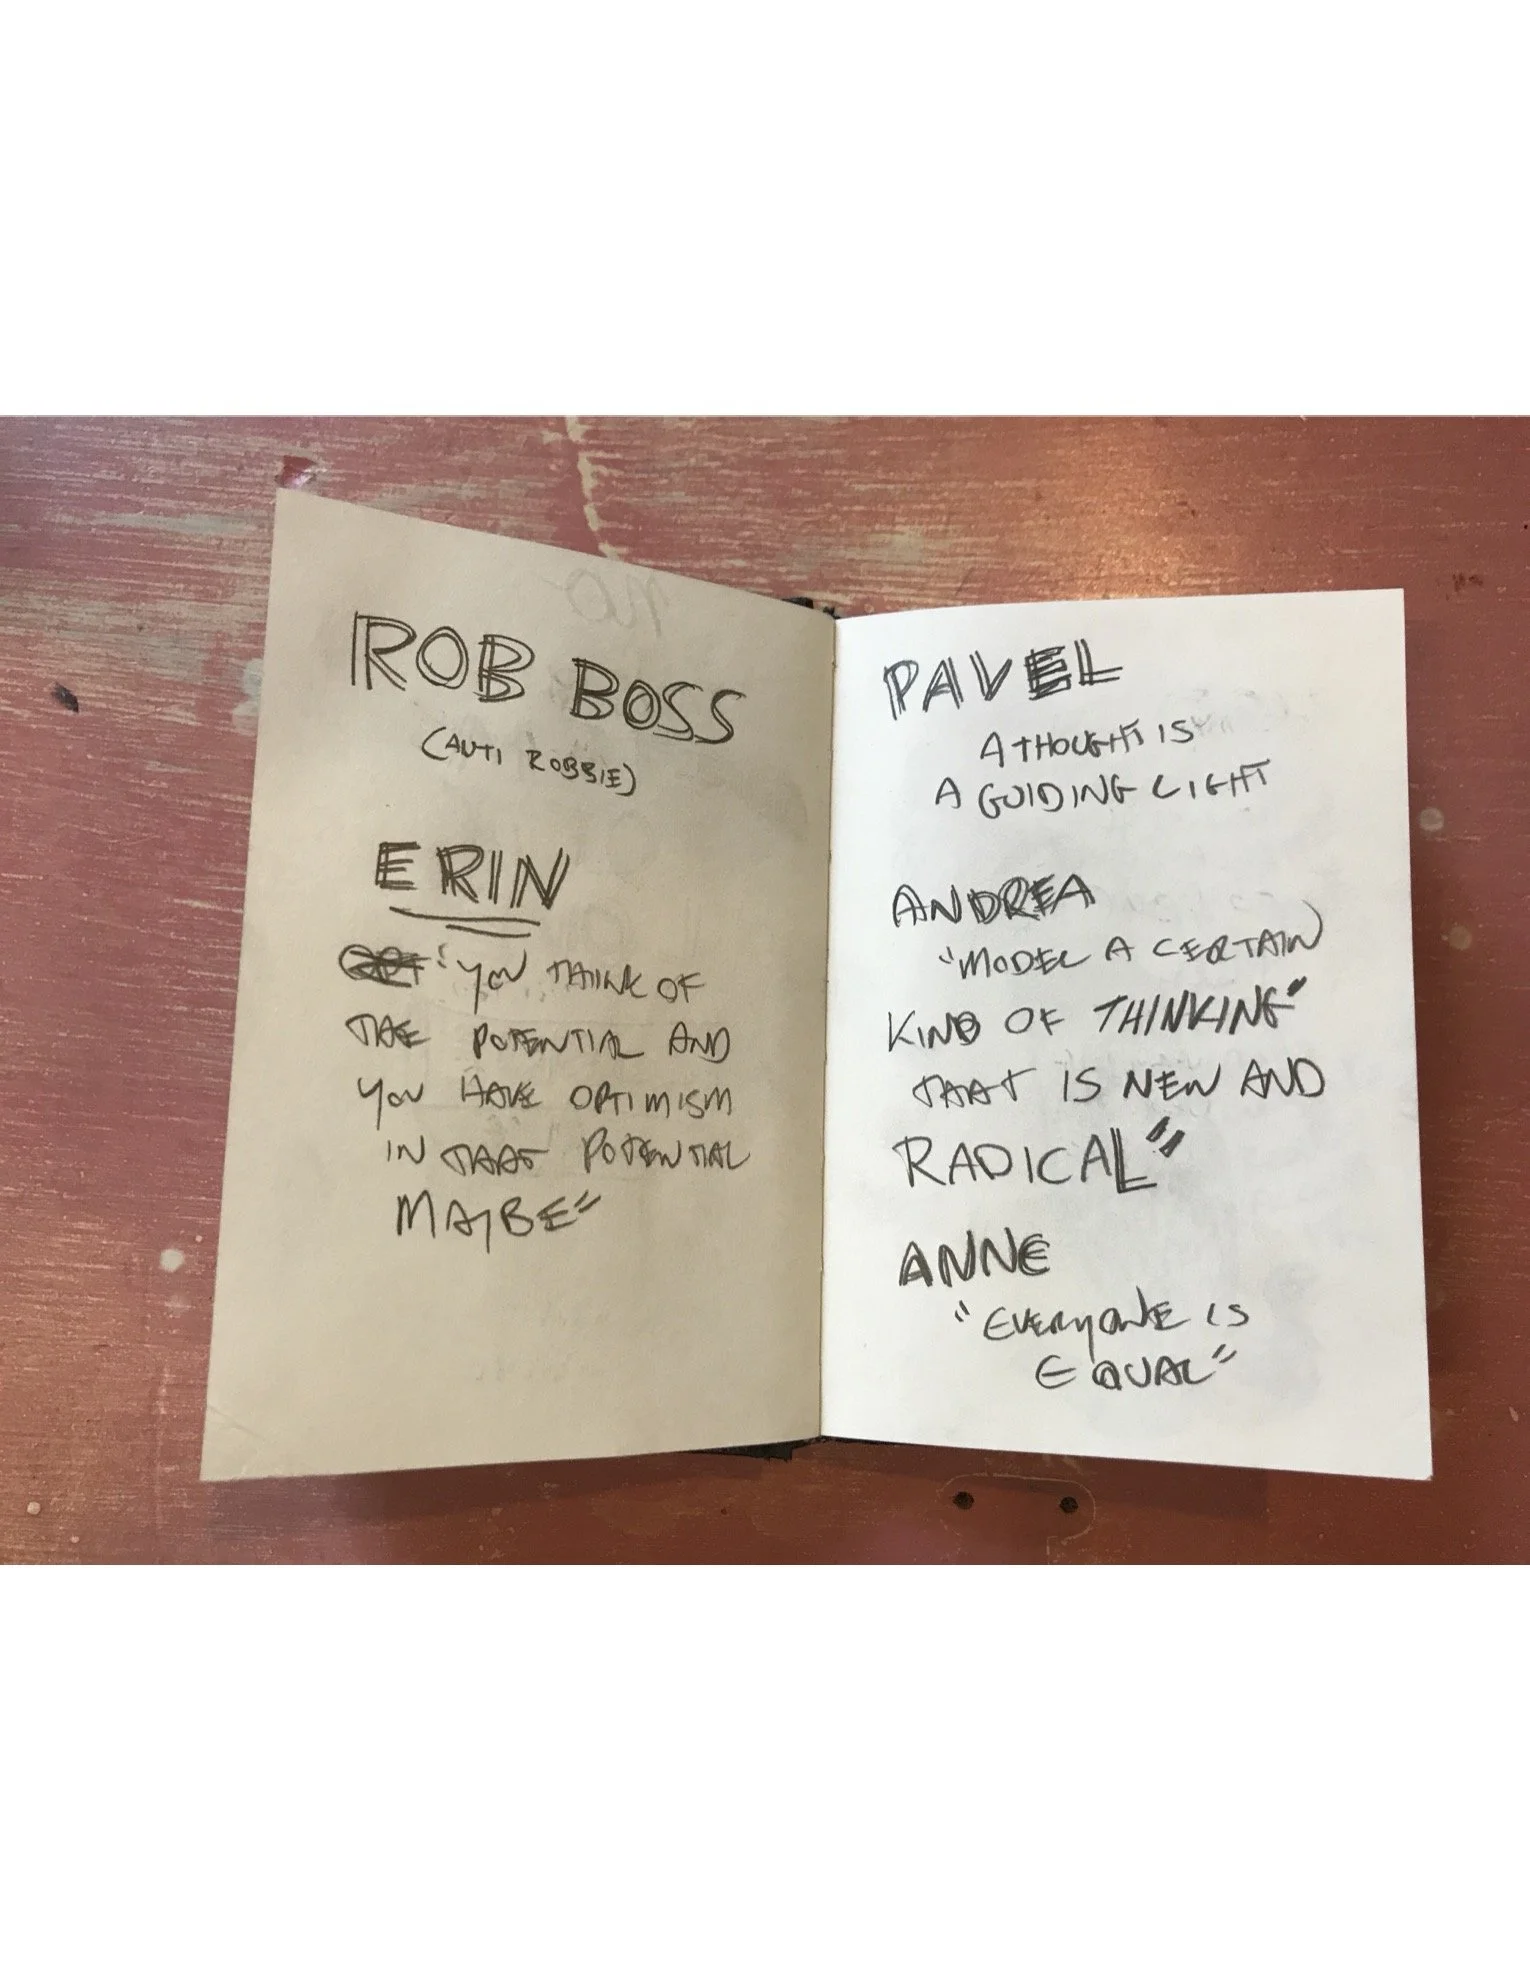 ROB BOSS
(AUTI ROBBIE)
ERIN
"YOU THINK OF
THE POTENTIAL AND
YOU HAVE OPTIMISM
IN THAT POTENTIAL
MAYBE"
PAVEL
A THOUGHT IS
A GUIDING LIGHT
ANDREA
"MODEL A CERTAIN
KIND OF THINKING"
THAT IS NEW AND
RADICAL"
ANNE
"EVERYONE IS
EQUAL"